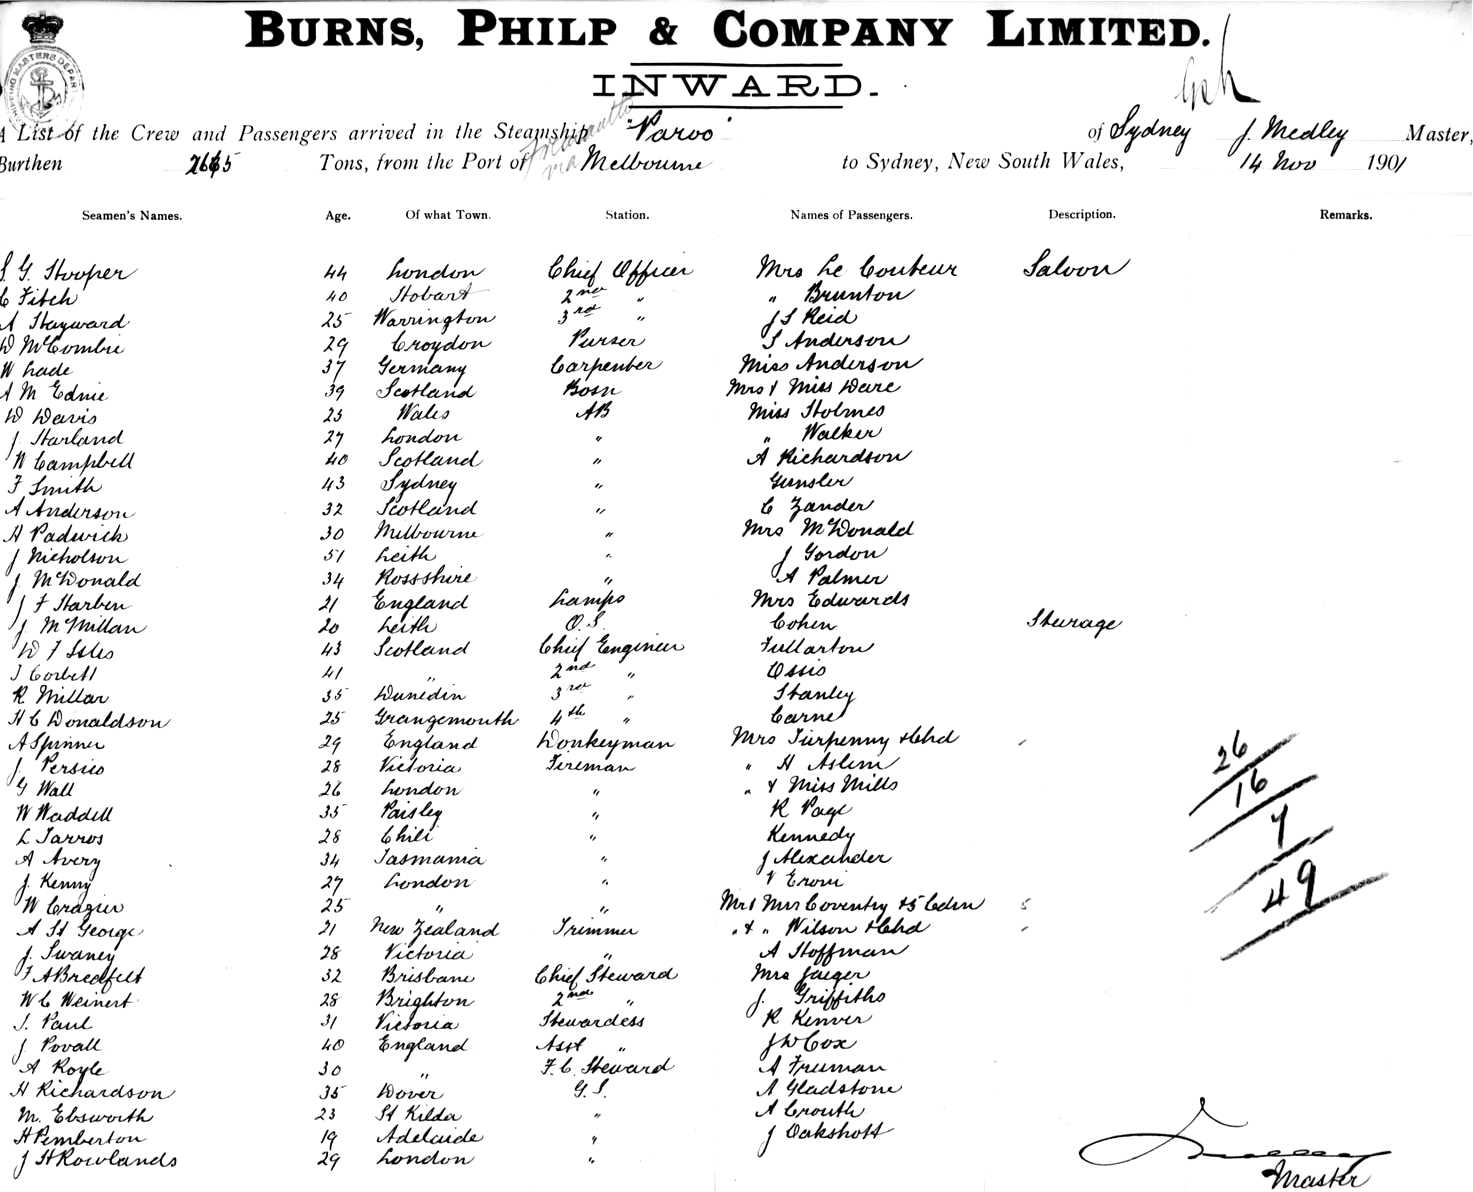 BURNS, PHILP & COMPANY LIMITED.
INWARD.
A List of the Crew and Passengers arrived in the Steamship "Paroo" of Sydney J. Medley Master,
Burthen 2665 Tons, from the Port of Fremantle via Melbourne to Sydney, New South Wales, 14 Nov 1901
Seamen's Names. Age. Of what Town. Station. Names of Passengers. Description. Remarks.
S. G. Hooper 44 London Chief Officer Mrs Le Couteur Saloon
C Fitch 40 Hobart 2nd " " Brunton
A Hayward 25 Warrington 3rd " J S Reid
D McCombie 29 Croydon Purser S Anderson
W Lade 37 Germany Carpenter Miss Anderson
A M Ednie 39 Scotland Bosn Mrs & Miss Dare
D Davis 25 Wales AB Miss Holmes
J Harland 27 London " " Walker
W Campbell 40 Scotland " A Richardson
F Smith 43 Sydney " Gunsler
A Anderson 32 Scotland " C Zander
H Padwick 30 Melbourne " Mrs McDonald
J Nicholson 51 Leith " J Gordon
J McDonald 34 Rossshire " A Palmer
J F Harben 21 England Lamps Mrs Edwards
J McMillan 20 Leith O.S. Cohen Steerage
D F Isles 43 Scotland Chief Engineer Fullarton
J Corbett 41 " 2nd " Ossis
R Millar 35 Dunedin 3rd " Stanley
H C Donaldson 25 Grangemouth 4th " Carne
A Spinner 29 England Donkeyman Mrs Turpenny & Chd
J. Persics 28 Victoria Fireman " H Aslem
G Wall 26 London " " & Miss Mills
W Waddell 35 Paisley " R Page
L Tarros 28 Chili " Kennedy
A Avery 34 Tasmania " J Alexander
J. Kenny 27 London " V Eroni
W Crazier 25 " " Mr & Mrs Coventry & 5 Cdrn
A St George 21 New Zealand Trimmer " & " Wilson & Chd
J. Swaney 28 Victoria " A Hoffman
F A Bredfelt 32 Brisbane Chief Steward Mrs Jaeger
W C Weinert 28 Brighton 2nd " J. Griffiths
S. Paul 31 Victoria Stewardess R Kenver
J Povall 40 England Asst " J W Cox
A Royle 30 " F.C. Steward A Freeman
H Richardson 35 Dover G.S. A Gladstone
M. Ebsworth 23 St Kilda " A Crouth
H Pemberton 19 Adelaide " J Oakshott
J H Rowlands 29 London "
26
16
7
49
Master